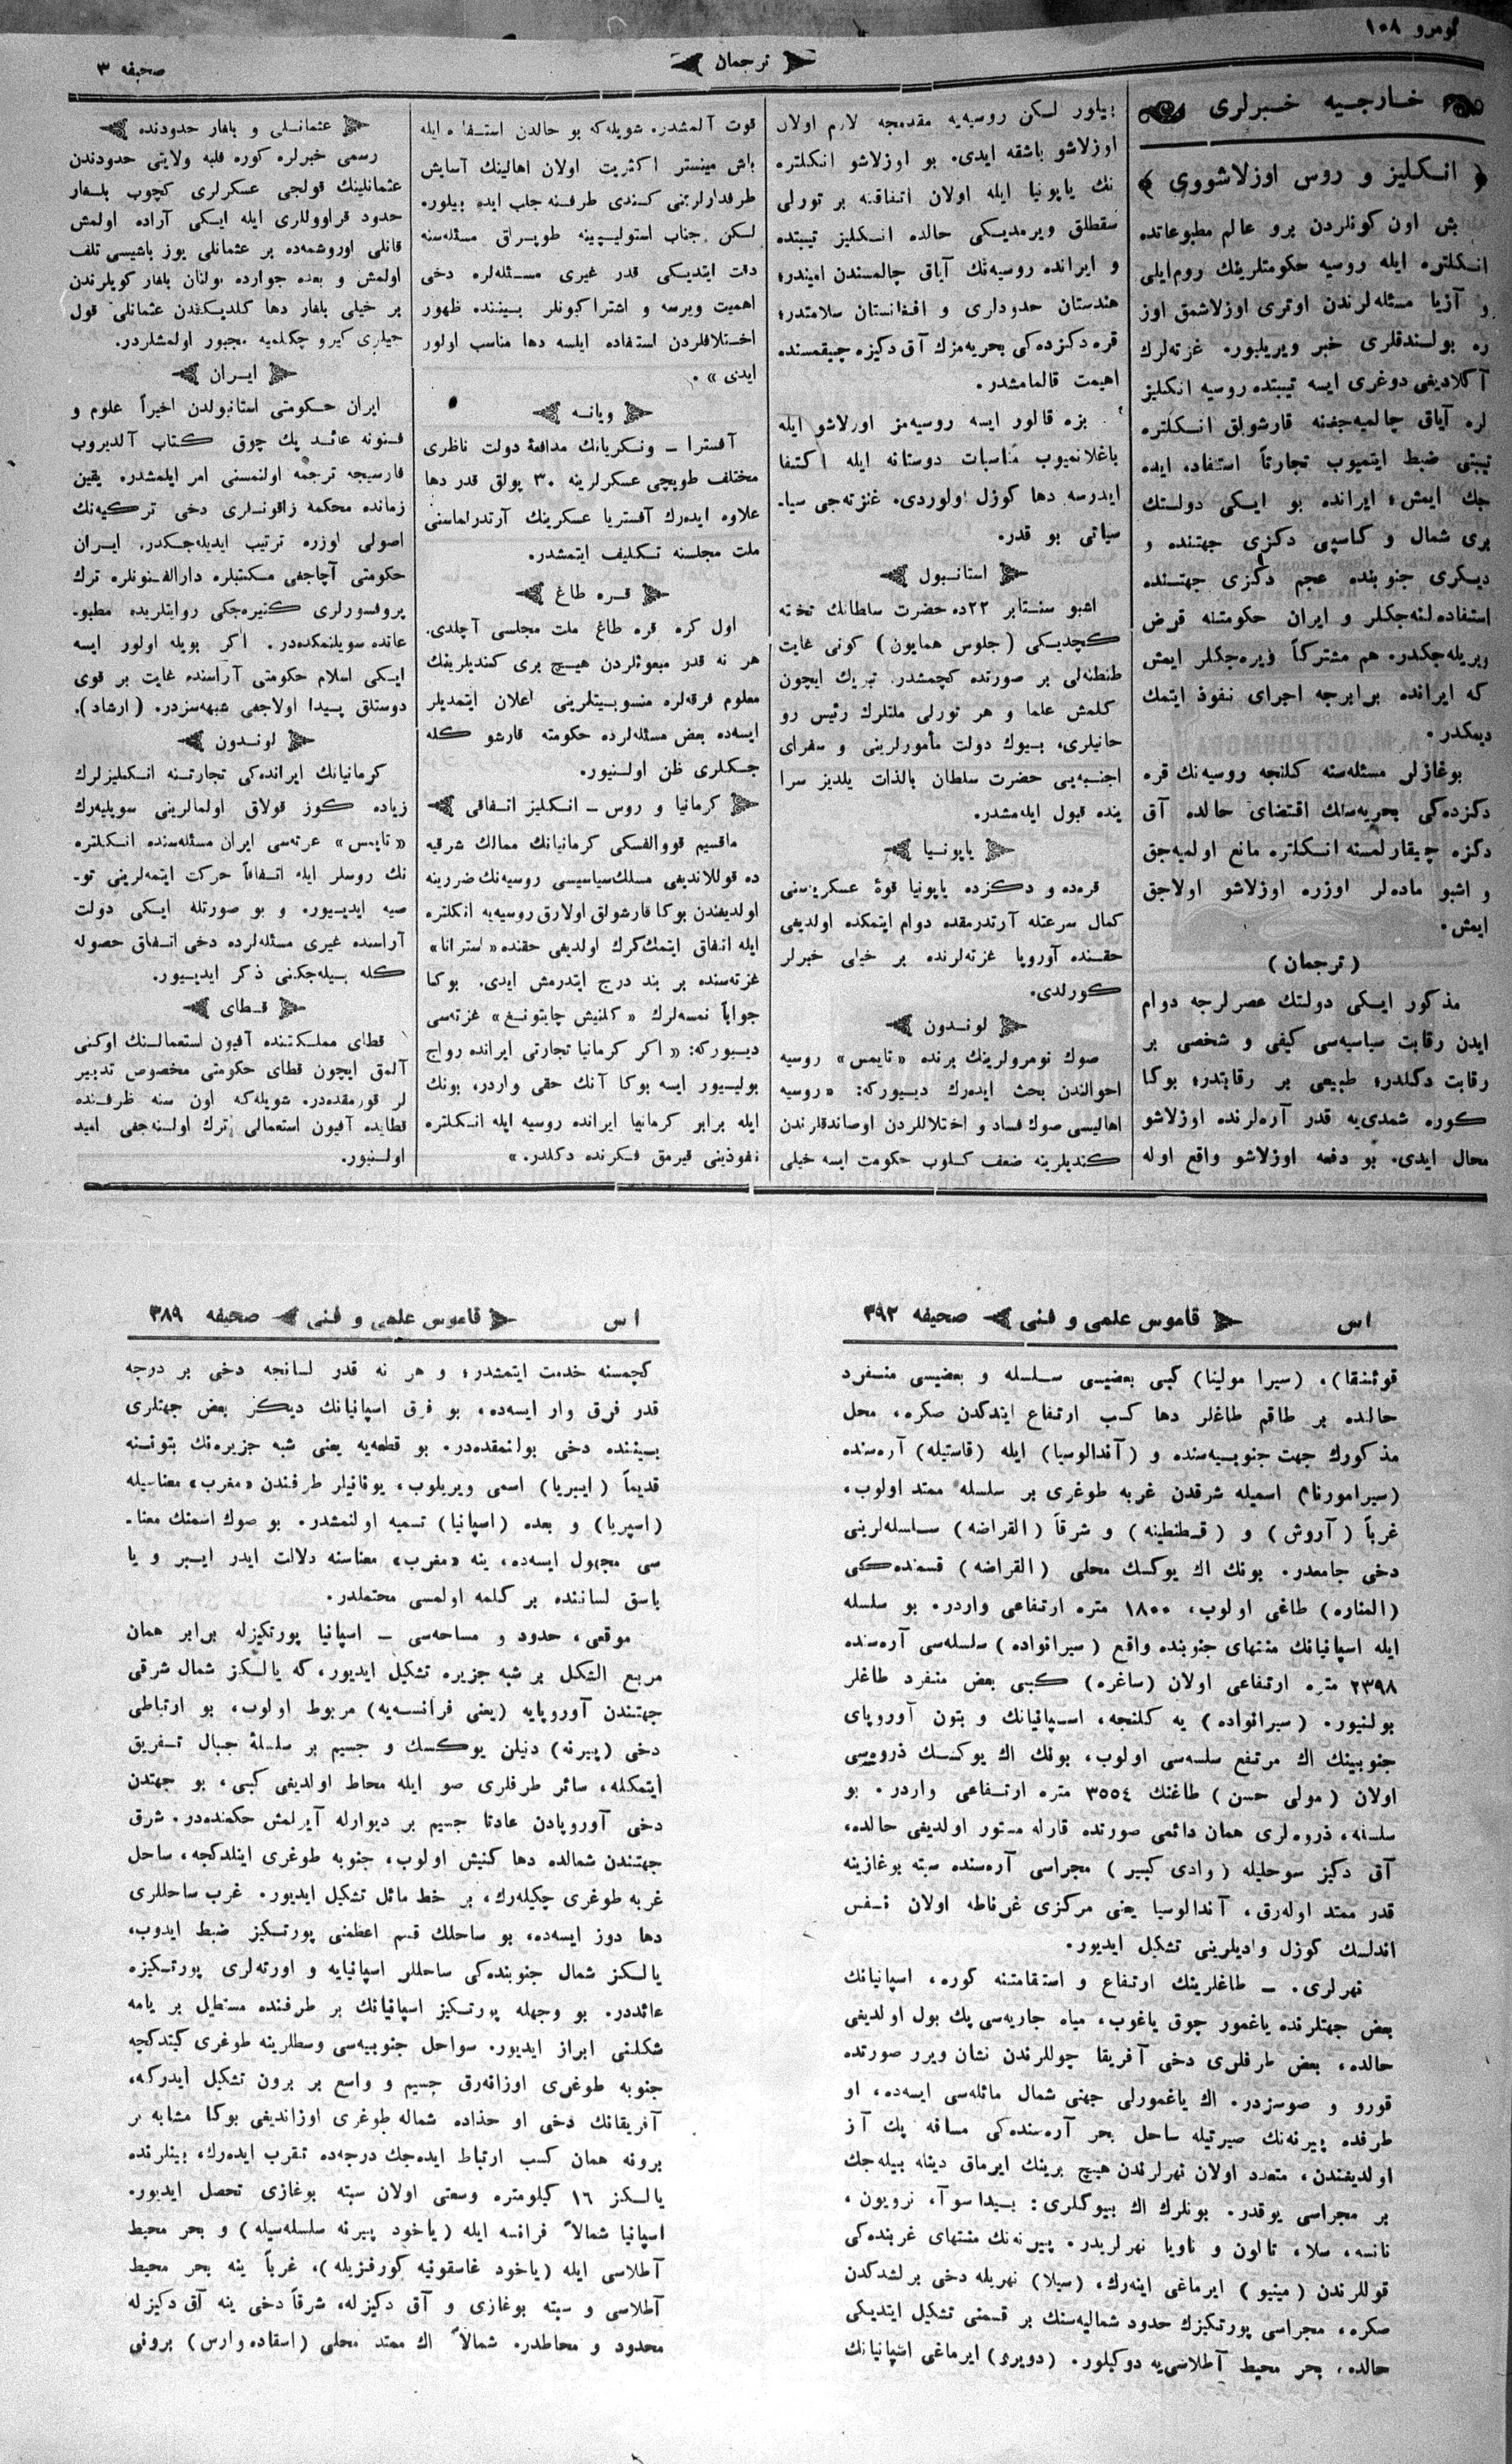 نومرو ١٠٨
ترجمان
صحیفه ٣
خارجیه خبرلری
﴿ انكلیز و روس اوزلاشووی ﴾
بش اون كونلردن برو عالم مطبوعاتده
انكلتره ایله روسیه حكومتلرینك روم‌ایلی
و آزیا مسئله‌لرندن اوتری اوزلاشمق اوز
ره بولندقلری خبر ویریلیور. غزته‌لرك
آكلادیغی دوغری ایسه تیبتده روسیه انكلیز
لره آیاق چالمیه‌جغنه قارشولق انكلتره
تیبتی ضبط ایتمیوب تجارتاً استفاده ایده
جك ایمش؛ ایرانده بو ایكی دولتك
بری شمال و كاسپی دكزی جهتنده و
دیكری جنوبنده عجم دكزی جهتنده
استفاده‌لنه‌جكلر و ایران حكومتنه قرض
ویریله‌جكدر. هم مشتركاً ویره‌جكلر ایمش
كه ایرانده برابرجه اجرای نفوذ ایتمك
دیمكدر.
بوغازلر مسئله‌سنه كلنجه روسیه‌نك قره
دكزده‌كی بحریه‌سنك اقتضای حالده آق
دكزه چیقارلمسنه انكلتره مانع اولمیه‌جق
و اشبو ماده‌لر اوزره اوزلاشو اولاجق
ایمش.
(ترجمان)
مذكور ایكی دولتك عصرلرجه دوام
ایدن رقابت سیاسیه‌سی كیفی و شخصی بر
رقابت دكلدر؛ طبیعی بر رقابتدر؛ بوكا
كوره شمدی‌یه قدر آره‌لرنده اوزلاشو
محال ایدی. بو دفعه اوزلاشو واقع اوله
بیلور لكن روسیه‌یه مقدمجه لازم اولان
اوزلاشو باشقه ایدی. بو اوزلاشو انكلتره
نك یاپونیا ایله اولان اتفاقنه بر تورلی
سقطلق ویرمدیكی حالده انكلیز تیبتده
و ایرانده روسیه‌نك آیاق چالمسندن امیندر؛
هندستان حدودلری و افغانستان سلامتدر؛
قره دكزده‌كی بحریه‌مزك آق دكیزه چیقمسنده
اهیمت قالمامشدر.
بزه قالور ایسه روسیه‌مز اوزلاشو ایله
باغلانمیوب مناسبات دوستانه ایله اكتفا
ایدرسه دها كوزل اولوردی. غزته‌جی سیا-
سیاتی بو قدر.
استانبول
اشبو سنتابر ٢٢ده حضرت سلطانك تخته
كچدیكی (جلوس همایون) كونی غایت
طنطنه‌لی بر صورتده كچمشدر. تبریك ایچون
كلمش علما و هر تورلی ملتلرك رئیس رو
حانیلری، بیوك دولت مأمورلرینی و سفرای
اجنبه‌یی حضرت سلطان بالذات یلدیز سرا
ینده قبول ایله‌مشدر.
یاپونیا
قره‌ده و دكزده یاپونیا قوهٔ عسكریه‌سنی
كمال سرعتله آرتدرمقده دوام ایتمكده اولدیغی
حقنده آوروپا غزته‌لرنده بر خیلی خبرلر
كورلدی.
لوندون
صوك نومرولرینك برنده «تایمس» روسیه
احوالندن بحث ایده‌رك دیسیوركه: «روسیه
اهالیسی صوك فساد و اختلاللردن اوصاندقلرندن
كندیلرینه ضعف كلوب حكومت ایسه خیلی
قوت آلمشدر. شویله‌كه بو حالدن استفاده ایله
باش مینستر اكثریت اولان اهالینك آسایش
طرفدارلرینی كندی طرفنه جلب ایده بیلور.
لكن جناب استولیپینه طوپراق مسئله‌سنه
دقت ایتدیكی قدر غیری مسئله‌لره دخی
اهمیت ویرسه و اشتراكیونلر بیننده ظهور
اختلافلردن استفاده ایلسه دها مناسب اولور
ایدی».
ویانه
آفسترا – ونكریانك مدافعهٔ دولت ناظری
مختلف طوپچی عسكرلرینه ٣٠ پولق قدر دها
علاوه ایده‌رك آفستریا عسكرینك آرتدرلماسنی
ملت مجلسنه تكلیف ایتمشدر.
قره طاغ
اول كره قره طاغ ملت مجلسی آچلدی.
هر نه قدر مبعوثلردن هیچ بری كندیلرینك
معلوم فرقه‌لره منسوبیتلرینی اعلان ایتمدیلر
ایسه‌ده بعض مسئله‌لرده حكومته قارشو كله
جكلری ظن اولنیور.
كرمانیا و روس – انكلیز اتفاقی
ماقسیم قووالفسكی كرمانیانك ممالك شرقیه
ده قوللاندیغی مسلك‌سیاسیسی روسیه‌نك ضررینه
اولدیغندن بوكا قارشولق اولارق روسیه‌یه انكلتره
ایله اتفاق ایتمك‌كرك اولدیغی حقنده «استرانا»
غزته‌سنده بر بند درج ایتدرمش ایدی. بوكا
جواباً نمسه‌لرك «كلنیش چایتونغ» غزته‌سی
دیسیوركه: «اكر كرمانیا تجارتی ایرانده رواج
بولیسیور ایسه بوكا آنك حقی واردر، بونك
ایله برابر كرمانیا ایرانده روسیه ایله انكلتره
نفوذینی قیرمق فكرنده دكلدر.»
عثمانلی و بلغار حدودنده
رسمی خبرلره كوره فلبه ولایتی حدودندن
عثمانلینك قولجی عسكرلری كچوب بلغار
حدود قراوللری ایله ایكی آراده اولمش
قانلی اوروشمه‌ده بر عثمانلی یوز باشیسی تلف
اولمش و بعده جوارده بولنان بلغار كویلرندن
بر خیلی بلغار دها كلدیكندن عثمانلی قول
جیلری كیرو چكلمیه مجبور اولمشلردر.
ایران
ایران حكومتی استانبولدن اخیراً علوم و
فنونه عائد پك چوق كتاب آلدیروب
فارسیجه ترجمه اولنمسنی امر ایلمشدر. یقین
زمانده محكمه زاقونلری دخی تركیه‌نك
اصولی اوزره ترتیب ایدیله‌جكدر. ایران
حكومتی آچاجغی مكتبلره دارالفنونلره ترك
پروفسورلری كتیره‌جكی روایتلریده مطبو-
عاتده سویلنمكده‌در. اكر بویله اولور ایسه
ایكی اسلام حكومتی آراسنده غایت بر قوی
دوستلق پیدا اولاجغی شبهه‌سزدر. (ارشاد).
لوندون
كرمانیانك ایرانده‌كی تجارتنه انكلیزلرك
زیاده كوز قولاق اولمالرینی سویلیه‌رك
«تایمس» غزته‌سی ایران مسئله‌سنده انكلتره
نك روسلر ایله اتفاقاً حركت ایتمه‌لرینی تو-
صیه ایدییور. و بو صورتله ایكی دولت
آراسنده غیری مسئله‌لرده دخی اتفاق حصوله
كله بیله‌جكنی ذكر ایدییور.
قطای
قطای مملكتنده آفیون استعمالنك اوكنی
آلمق ایچون قطای حكومتی مخصوص تدبیر
لر قورمقده‌در. شویله‌كه اون سنه ظرفنده
قطایده آفیون استعمالی ترك اولنه‌جغی امید
اولنیور.
اس
قاموس علمی و فنی
صحیفه ٣٩٢
قوئنقا). (سیرا مولینا) كبی بعضیسی سلسله و بعضیسی منفرد
حالده بر طاقم طاغلر دها كسب ارتفاع ایتدكدن صكره، محل
مذكورك جهت جنوبیه‌سنده و (آندالوسیا) ایله (قاستیله) آره‌سنده
(سیرامورنا) اسمیله شرقدن غربه طوغری بر سلسله ممتد اولوب،
غرباً (آروش) و (قطنطینه) و شرقاً (القراضه) سلسله‌لرینی
دخی جامعدر. بونك اك یوكسك محلی (القراضه) قسمنده‌كی
(المناره) طاغی اولوب، ١٨٠٠ متره ارتفاعی واردر. بو سلسله
ایله اسپانیانك منتهای جنوبنده واقع (سیرانواده) سلسله‌سی آره‌سنده
٢٣٩٨ متره ارتفاعی اولان (ساغره) كبی بعض منفرد طاغلر
بولنیور. (سیرانواده) یه كلنجه، اسپانیانك و بتون آوروپای
جنوبینك اك مرتفع سلسه‌سی اولوب، بونك اك یوكسك ذروه‌سی
اولان (مولی حسن) طاغنك ٣٥٥٤ متره ارتفاعی واردر. بو
سلسله، ذروه‌لری همان دائمی صورتده قارله مستور اولدیغی حالده،
آق دكیز سوحلیله (وادی كبیر) مجراسی آره‌سنده سبته بوغازینه
قدر ممتد اوله‌رق، آندالوسیا یعنی مركزی غرناطه اولان نفس
اندلسك كوزل وادیلرینی تشكیل ایدیور.
نهرلری. – طاغلرینك ارتفاع و استقامتنه كوره، اسپانیانك
بعض جهتلرنده یاغمور چوق یاغوب، میاه جاریه‌سی پك بول اولدیغی
حالده، بعض طرفلری دخی آفریقا چوللرندن نشان ویرر صورتده
قورو و صوسزدر. اك یاغمورلی جهتی شمال مائله‌سی ایسه‌ده، او
طرفده پیرنه‌نك صیرتیله ساحل بحر آره‌سنده‌كی مسافه پك آز
اولدیغندن، متعدد اولان نهرلرندن هیچ برینك ایرماق دینله بیله‌جك
بر مجراسی یوقدر. بونلرك اك بیوكلری: بیداسوآ، نرویون،
نانسه، سلا، نالون و ناویا نهرلریدر. پیرنه‌نك منتهای غربنده‌كی
قوللرندن (مینیو) ایرماغی اینه‌رك، (سیلا) نهریله دخی برلشدكدن
صكره، مجراسی پورتكیزك حدود شمالیه‌سنك بر قسمنی تشكیل ایتدیكی
حالده، بحر محیط آطلاسی‌یه دوكیلور. (دویره) ایرماغی اسپانیانك
اس
قاموس علمی و فنی
صحیفه ٣٨٩
كچمسنه خدمت ایتمشدر؛ و هر نه قدر لسانجه دخی بر درجه
قدر فرق وار ایسه‌ده، بو فرق اسپانیانك دیكر بعض جهتلری
بیننده دخی بولنمقده‌در. بو قطعه‌یه یعنی شبه جزیره‌نك بتوننه
قدیماً (ایبریا) اسمی ویریلوب، یونانیلر طرفندن «مغرب» معناسیله
(اسپریا) و بعده (اسپانیا) تسمیه اولنمشدر. بو صوك اسمنك معنا-
سی مجهول ایسه‌ده، ینه «مغرب» معناسنه دلالت ایدر ایبر و یا
باسق لساننده بر كلمه اولمسی محتملدر.
موقعی، حدود و مساحه‌سی – اسپانیا پورتكیزله برابر همان
مربع الشكل بر شبه جزیره تشكیل ایدیور، كه یالكز شمال شرقی
جهتندن آوروپایه (یعنی فرانسه‌یه) مربوط اولوب، بو ارتباطی
دخی (پیرنه) دنیلن یوكسك و جسیم بر سلسلهٔ جبال تفریق
ایتمكله، سائر طرفلری صو ایله محاط اولدیغی كبی، بو جهتدن
دخی آوروپادن عادتا جسیم بر دیوارله آیرلمش حكمنده‌در. شرق
جهتندن شمالده دها كنیش اولوب، جنوبه طوغری اینلدكجه، ساحل
غربه طوغری چكیله‌رك، بر خط مائل تشكیل ایدیور. غرب ساحللری
دها دوز ایسه‌ده، بو ساحلك قسم اعظمنی پورتكیز ضبط ایدوب،
یالكز شمال جنوبنده‌كی ساحللر اسپانیایه و اورته‌لری پورتكیزه
عائددر. بو وجهله پورتكیز اسپانیانك بر طرفنده مستطیل بر یامه
شكلنی ابراز ایدیور. سواحل جنوبیه‌سی وسطلرینه طوغری كیتدكجه
جنوبه طوغری اوزانه‌رق جسیم و واسع بر برون تشكیل ایدركه،
آفریقانك دخی او حذاده شماله طوغری اوزاندیغی بوكا مشابه بر
برونه همان كسب ارتباط ایده‌جك درجه‌ده تقرب ایده‌رك، بینلرنده
یالكز ١٦ كیلومتره وسعتی اولان سبته بوغازی تحصل ایدیور.
اسپانیا شمالاً فرانسه ایله (یاخود پیرنه سلسله‌سیله) و بحر محیط
آطلاسی ایله (یاخود غاسقونیه كورفزیله)، غرباً ینه بحر محیط
آطلاسی و سبته بوغازی و آق دكیزله، شرقاً دخی ینه آق دكیزله
محدود و محاطدر. شمالاً اك ممتد محلی (اسقاده وارس) برونی